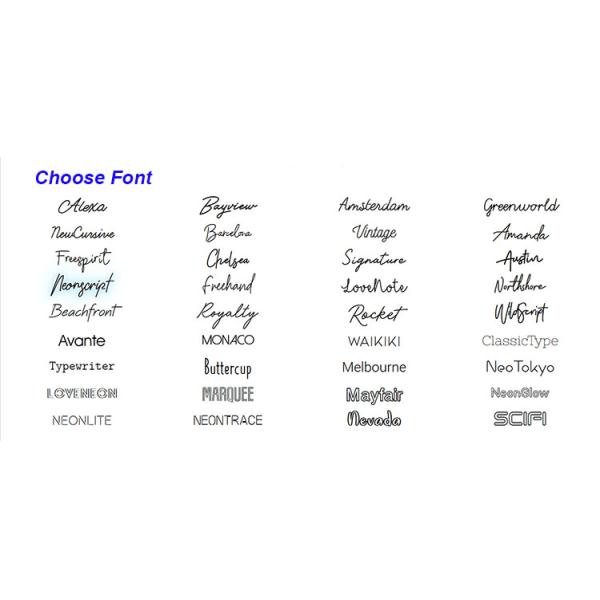 Choose Font
Alexa Bayview Amsterdam Greenworld
NeuCursive Barcelona Vintage Amanda
Freespirit Chelsea Signature Austin
Neonscript Freehand LoveNote Northshore
Beachfront Royalty Rocket WildScript
Avante MONACO WAIKIKI ClassicType
Typewriter Buttercup Melbourne NeoTokyo
LOVENEON MARQUEE Mayfair NeonGlow
NEONLITE NEONTRACE Nevada SCIFI